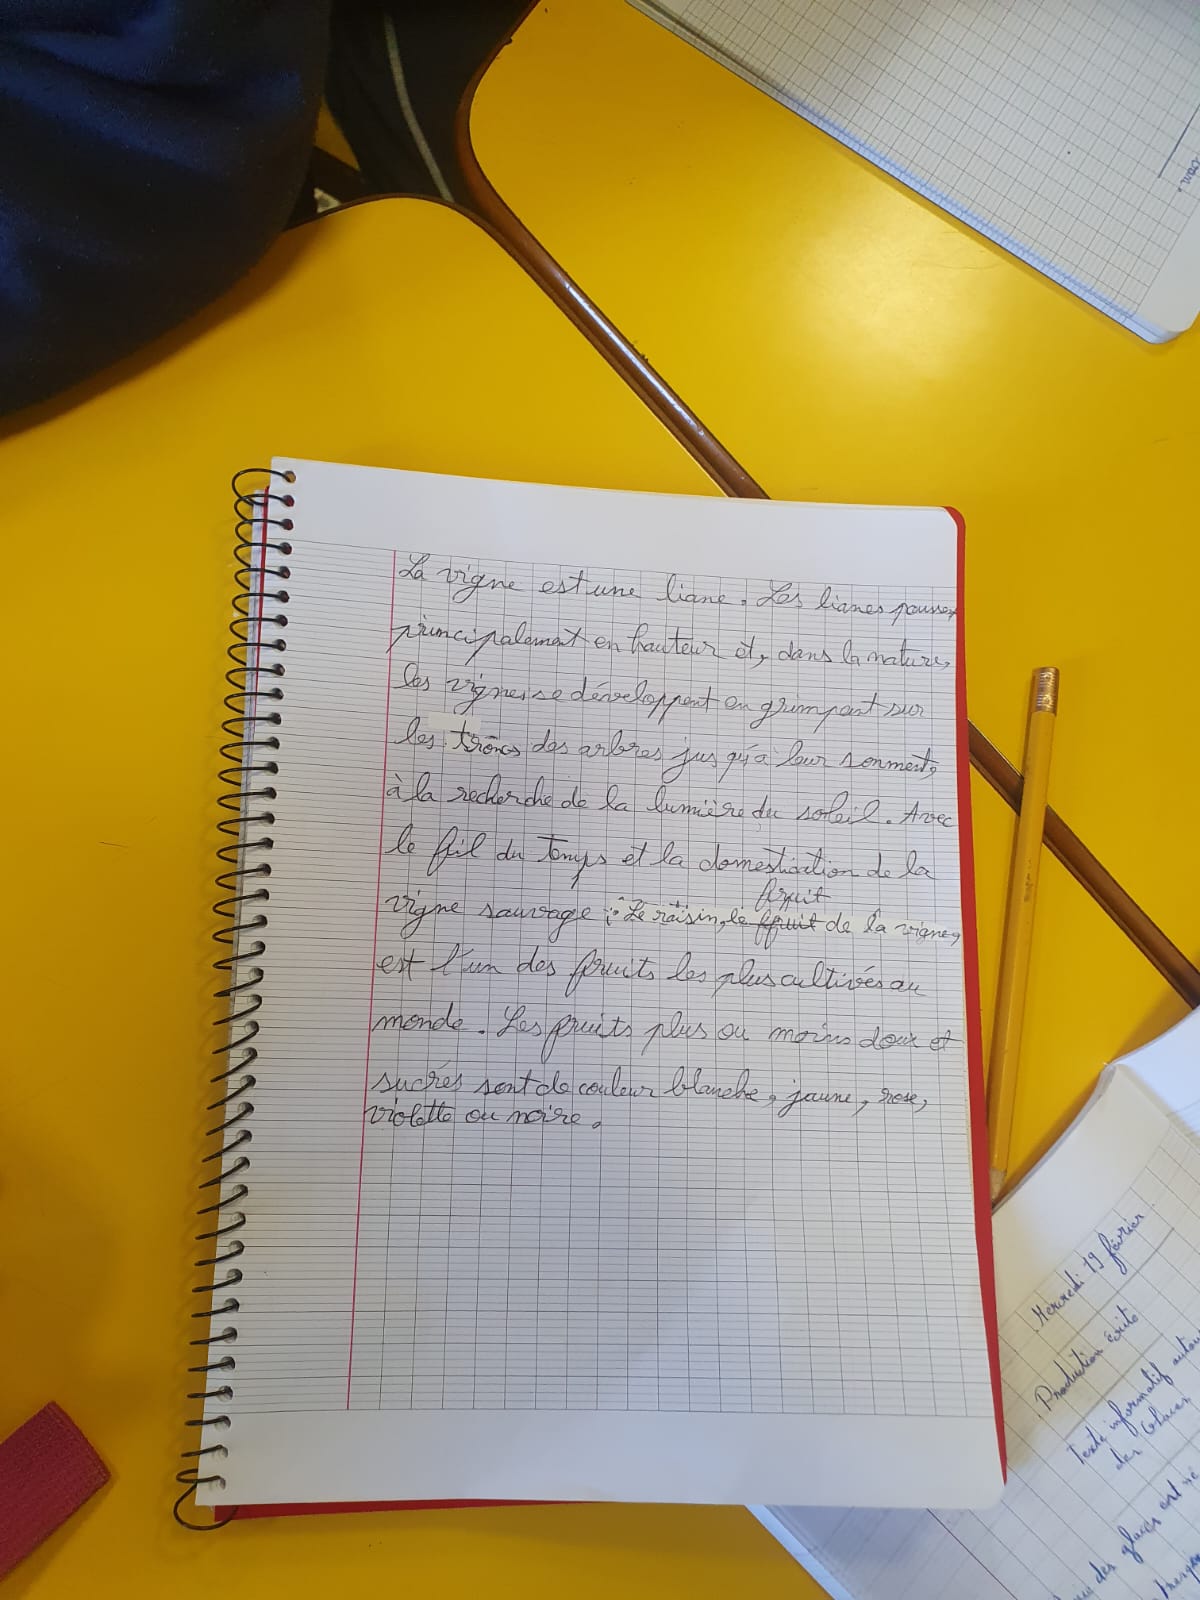 La vigne est une liane. Les lianes poussent
principalement en hauteur et, dans la nature,
les vignes se développent en grimpant sur
les troncs des arbres jus qu'à leur sonment,
à la recherche de la lumière du soleil. Avec
le fil du temps et la domestication de la
fruit
vigne sauvage : Le raisin, le fruit de la vigne,
est l'un des fruits les plus cultivés au
monde. Les fruits plus ou moins doux et
sucrés sont de couleur blanche, jaune, rose,
violette ou noire.
Mercredi 19 février
Production écrite
Texte informatif autour
des Glaces
des glaces est né